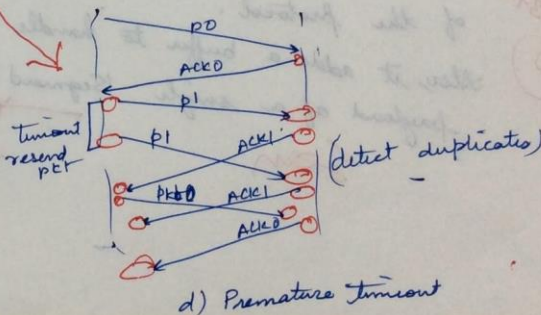 P0
ACK0
P1
timeout
resend
pkt
P1
ACK1
(detect duplicates)
Pkt0
ACK1
ACK0
d) Premature timeout